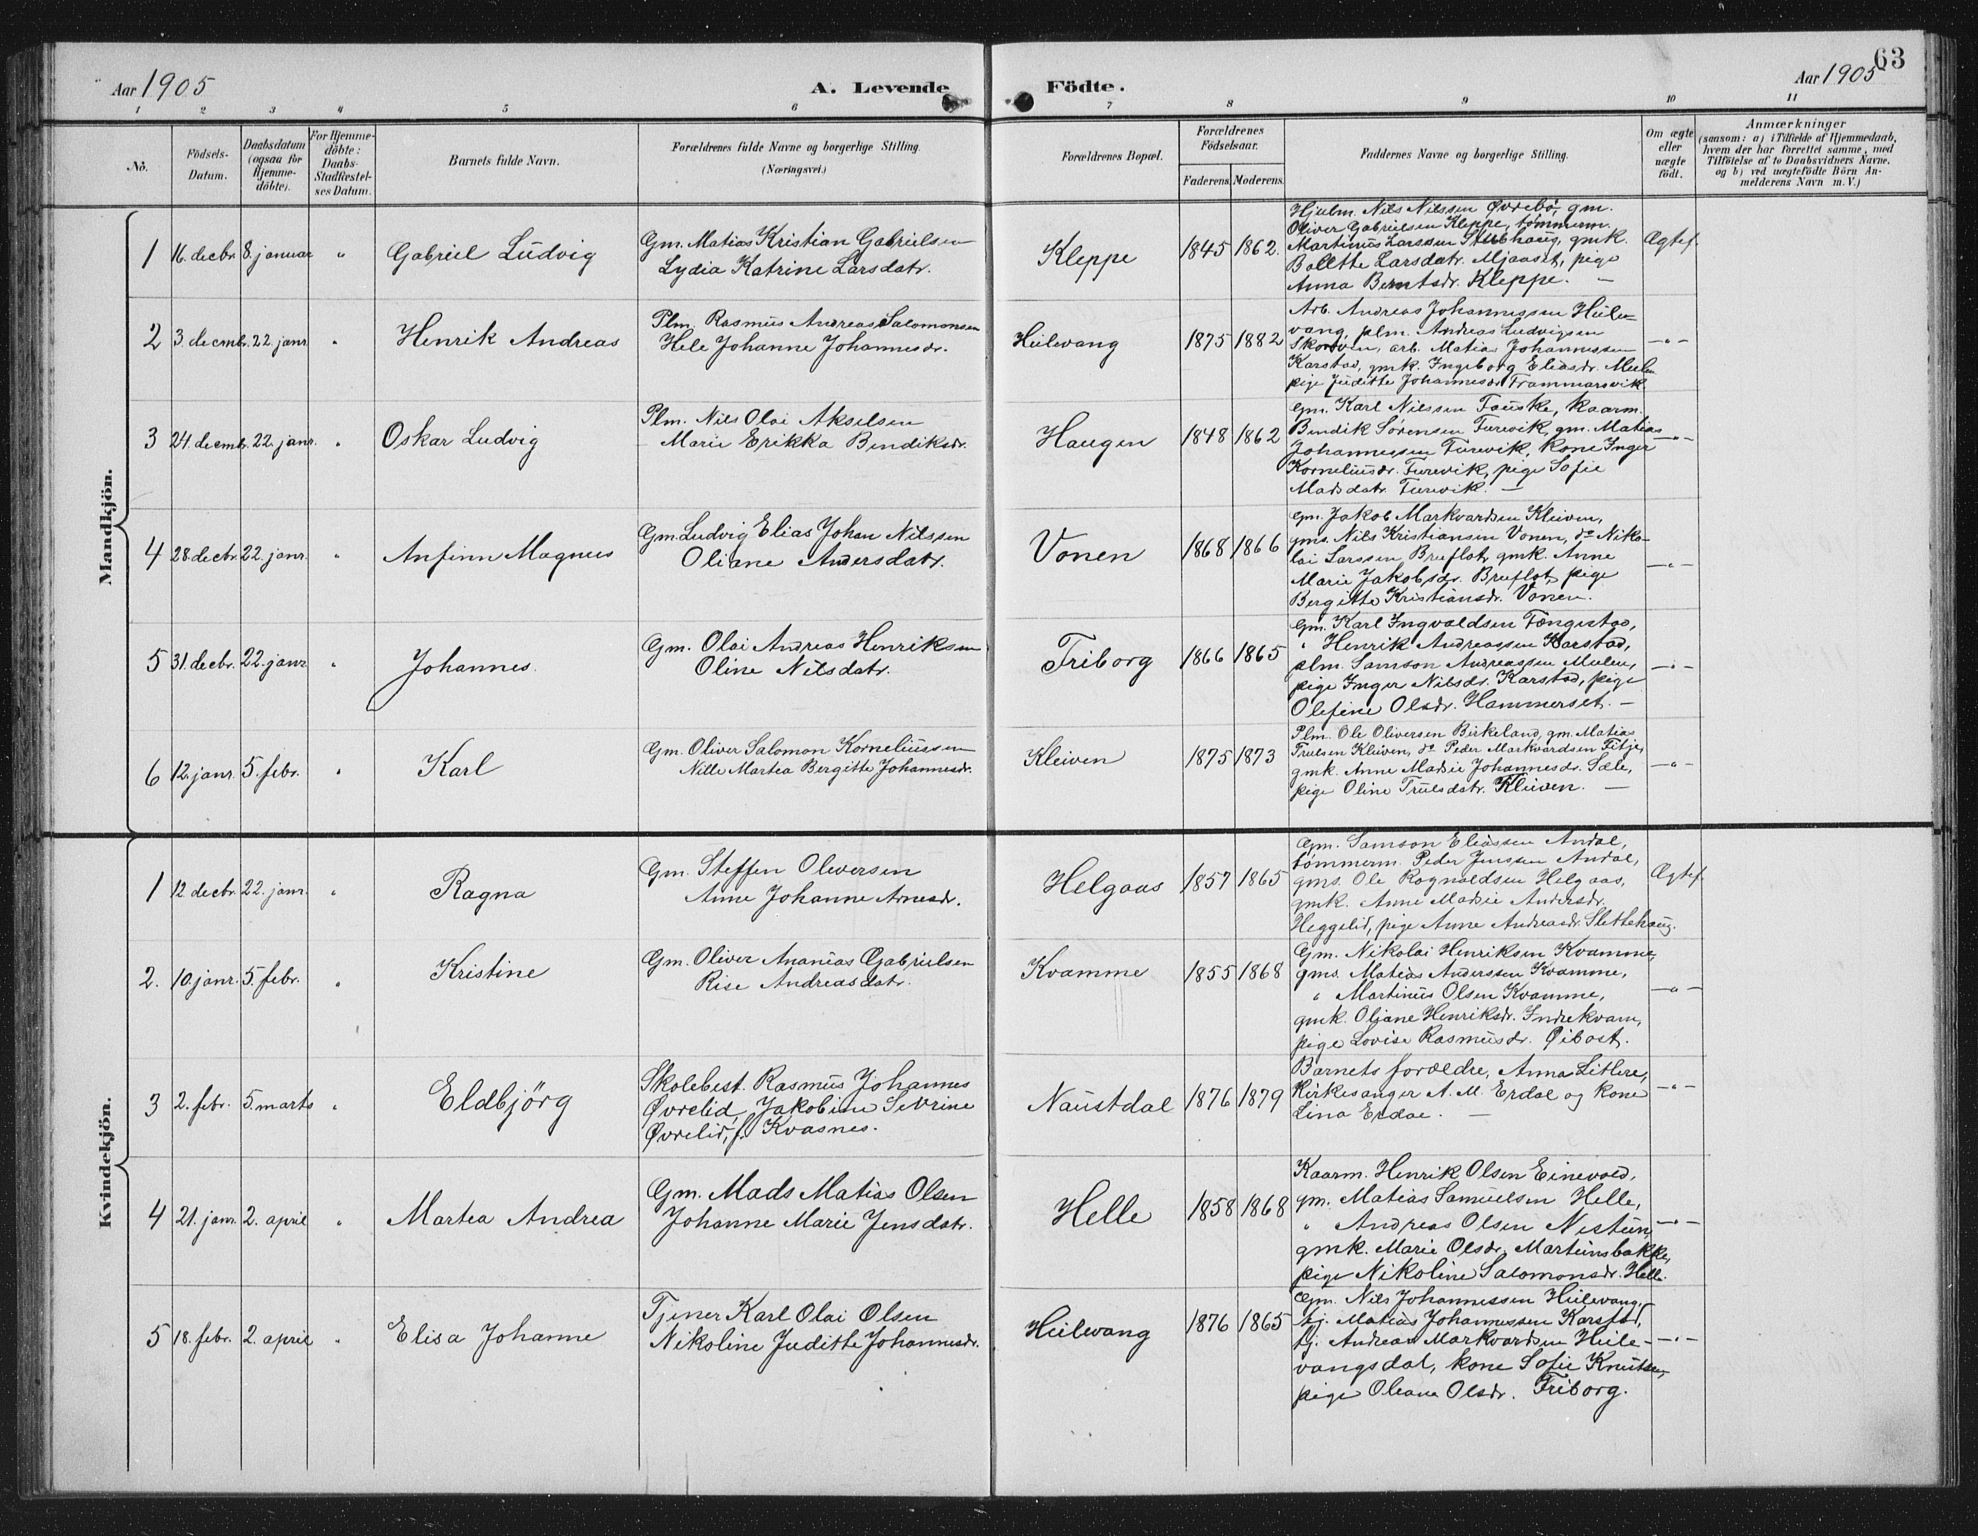 63
Aar 1905
A. Levende
Födte.
Aar 1905
1 2 3 4 5 6 7 8 9 10 11
No.
Födsels-
Datum.
Daabsdatum
(ogsaa for
Hjemme-
döbte).
For Hjemme-
döbte:
Daabs-
Stadfæstel-
ses Datum.
Barnets fulde Navn.
Forældrenes fulde Navne og borgerlige Stilling.
(Næringsvei.)
Forældrenes Bopæl.
Forældrenes
Födselsaar.
Faderens. Moderens.
Faddernes Navne og borgerlige Stilling.
Om ægte
eller
uægte
födt.
Anmærkninger
(saasom: a) i Tilfælde af Hjemmedaab,
hvem der har forrettet samme, med
Tilföielse af to Daabsvidners Navne.
og b) ved uægtefödte Börn An-
melderens Navn m. V.)
Mandkjön.
1 16. decbr. 8. januar " Gabriel Ludvig
Gm. Matias Kristian Gabrielsen
Lydia Katrine Larsdatr.
Kleppe 1845 1862.
Hjulm. Nils Nilssen Øvrebö, gm.
Oliver Gabrielsen Kleppe, tømmerm.
Martinus Larssen Stubhaug, gmk.
Bolette Larsdatr. Mjaaset, pige
Anna Berntsdr. Kleppe. —
Ægtef.
2 3. decmb. 22. janr. " Henrik Andreas
Plm. Rasmus Andreas Salomonsen
Hele Johanne Johannesdr.
Hülevang 1875 1882
Arb. Andreas Johannessen Hüle-
vang, plm. Andreas Ludvigsen
Skorven, arb. Matias Johannessen
Karstad, gmk. Ingeborg Eliasdr. Mulen
pige Juditte Johannesdr. Frammarsvik.
—"—
3 24. decmb. 22. janr. " Oskar Ludvig
Plm. Nils Olai Akselsen
Marie Erikka Bendiksdr.
Haugen 1848 1862
Gm. Karl Nilssen Fauske, kaarm.
Bendik Sørensen Furevik, gm. Matias
Johannessen Furevik, kone Inger
Korneliusdr. Furevik, pige Sofie
Madsdatr. Furevik. —
—"—
4 28. decbr. 22. janr. " Anfinn Magnus
Gm. Ludvig Elias Johan Nilssen
Oliane Andersdatr.
Vonen 1868 1866
Gm. Jakob Markvardsen Kleiven,
gms. Nils Kristiansen Vonen, do Niko-
lai Larssen Bruflot, gmk. Anne
Marie Jakobsdr. Bruflot, pige
Bergitte Kristiansdr. Vonen.
—"—
5 31. decbr. 22. janr. " Johannes
Gm. Olai Andreas Henriksen
Oline Nilsdatr.
Friborg 1866 1865
Gm. Karl Ingvaldsen Tængestad,
" Henrik Andreassen Karstad,
plm. Samson Andreassen Mulen,
pige Inger Nilsdr. Karstad, pige
Olefine Olsdr. Hammerset. —
—"—
6 12. janr. 5. febr. " Karl
Gm. Oliver Salomon Korneliussen
Nille Martea Bergitte Johannesdr.
Kleiven 1875 1873
Plm. Ole Oliversen Birkeland, gm. Matias
Trulsen Kleiven, do Peder Markvardsen Fitje,
gmk. Anne Marie Johannesdr. Sæle,
pige Oline Trulsdatr. Kleiven. —
—"—
Kvindekjön.
1 12. decbr. 22. janr. " Ragna
Gm. Steffen Oliversen
Anne Johanne Arnesdr.
Helgaas 1857 1865
Gm. Samson Eliassen Andal,
tømmerm. Peder Jenssen Andal,
gms. Ole Rognaldsen Helgaas,
gmk. Anne Marie Andersdr.
Heggelid, pige Anne Andreasdr. Slettehaug.
Ægtef.
2. 10. janr. 5. febr. " Kristine
Gm. Oliver Ananias Gabrielsen
Rise Andreasdatr.
Kvamme 1855 1868
Gm. Nikolai Henriksen Kvamme,
gms. Matias Anderssen Kvamme,
" Martinus Olsen Kvamme,
gmk. Oljane Henriksdr. Indrekvam,
pige Lovise Rasmusdr. Øibost.
—"—
3 2. febr. 5. marts " Eldbjörg
Skolebest. Rasmus Johannes
Øvrelid, Jakobine Severine
Øvrelid, f. Kvasnes.
Naustdal 1876 1879
Barnets forældre, Anna Litlere,
Kirkesanger A. M. Erdal og kone
Lina Erdal. —
—"—
4 21. janr. 2. april " Martea Andrea
Gm. Mads Matias Olsen
Johanne Marie Jensdatr.
Helle 1858 1868
Kaarm. Henrik Olsen Einevold,
gm. Matias Samuelsen Helle,
" Andreas Olsen Nistun,
gmk. Marie Olsdr. Martinsbakke,
pige Nikoline Salomonsdr. Helle.
—"—
5 18. febr. 2. april " Elisa Johanne
Tjener Karl Olai Olsen
Nikoline Juditte Johannesdr.
Hülevang 1876 1865
Gm. Nils Johannessen Hülevang,
tj. Matias Johannessen Karstad,
tj. Andreas Markvardsen Hüle-
vangsdal, kone Sofie Knutsen,
pige Oliana Olsdr. Friborg.
—"—